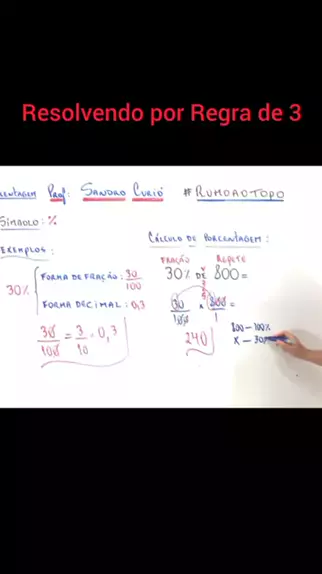 Resolvendo por Regra de 3
CENTAGEM PROFº: SANDRO CURIÓ #RUMOAOTOPO
SÍMBOLO: %
EXEMPLOS:
30% FORMA DE FRAÇÃO: 30/100
FORMA DECIMAL: 0,3
30/100 = 3/10 = 0,3
CÁLCULO DE PORCENTAGEM:
FRAÇÃO REPETE
30% DE 800 =
30/100 x 800/1 =
240
800 - 100%
X - 30